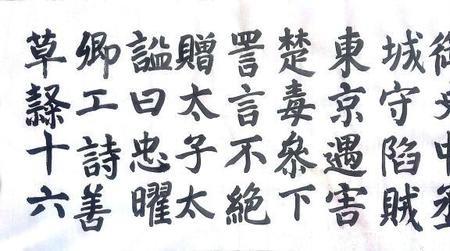 御史中丞
城守陷賊
東京遇害
楚毒參下
詈言不絕
贈太子太
謚曰忠曜
卿工詩善
草隸十六